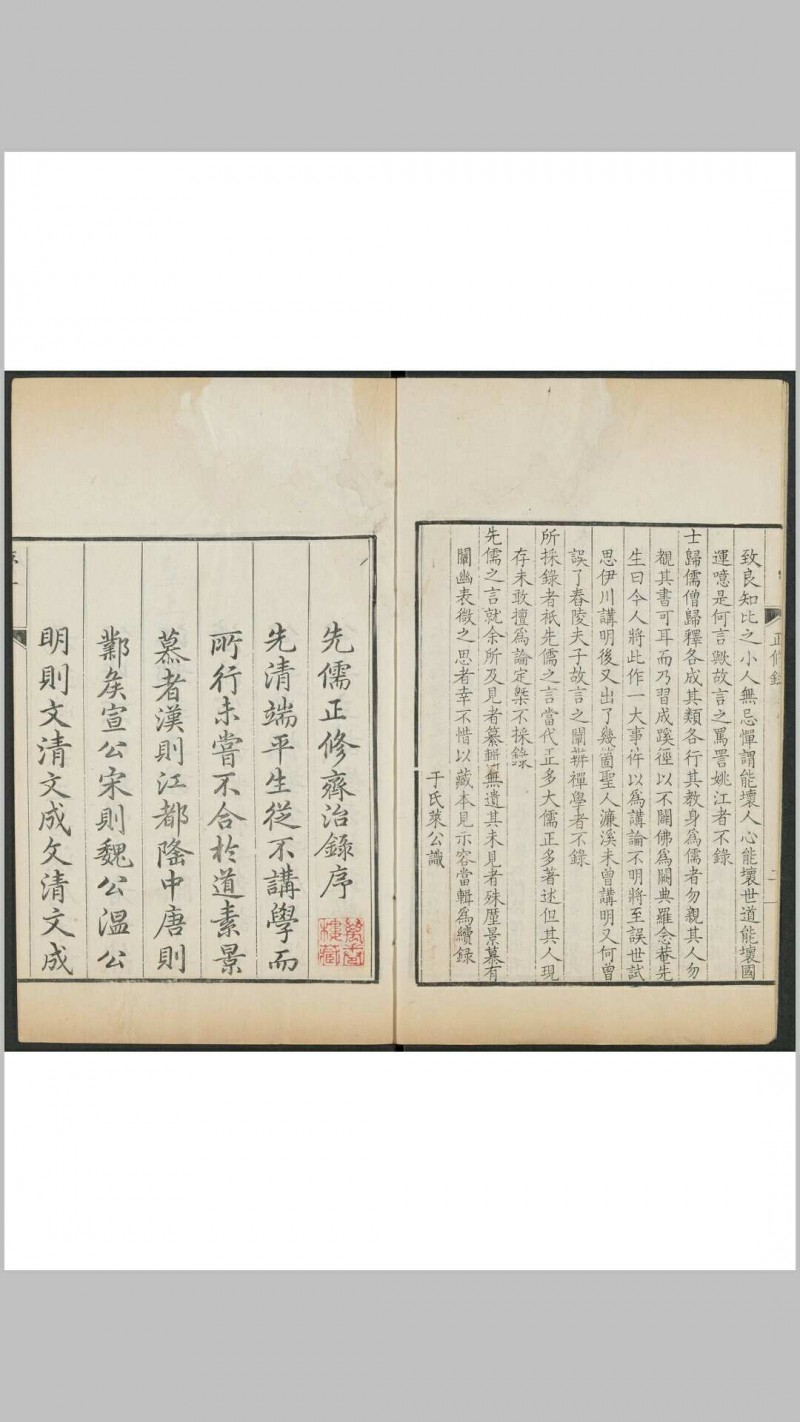 正修錄
二
致良知比之小人無忌憚謂能壞人心能壞世道能壞國
運噫是何言歟故言之罵詈姚江者不錄
士歸儒僧歸釋各成其類各行其教身爲儒者勿親其人勿
覩其書可耳而乃習成蹊徑以不闢佛爲闕典羅念菴先
生曰今人將此作一大事件以爲講論不明將至誤世試
思伊川講明後又出了幾箇聖人濂溪未曾講明又何曾
誤了舂陵夫子故言之闢辨禪學者不錄
所採錄者祇先儒之言當代正多大儒正多著述但其人現
存未敢擅爲論定槩不採錄
先儒之言就余所及見者纂輯無遺其未見者殊歷景慕有
闡幽表微之思者幸不惜以藏本見示容當輯爲續錄
于氏萊公識
先儒正修齊治錄序
萬書樓藏
先清端平生從不講學而
所行未嘗不合於道素景
慕者漢則江都隆中唐則
鄴矦宣公宋則魏公溫公
明則文清文成文清文成
序一